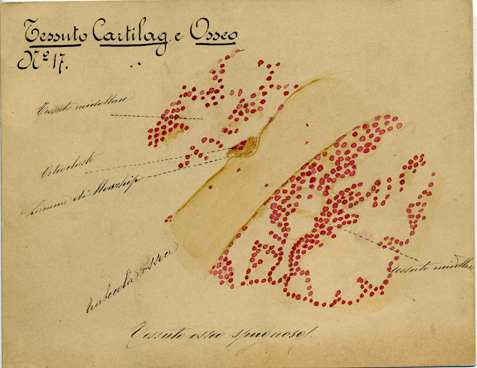 Tessuto Cartilag. e Osseo
Nº 17.
Tessuto midollare
Osteoclasti
Lacuna di Howship
trabecola ossea
tessuto midollare
Tessuto osseo spugnoso.